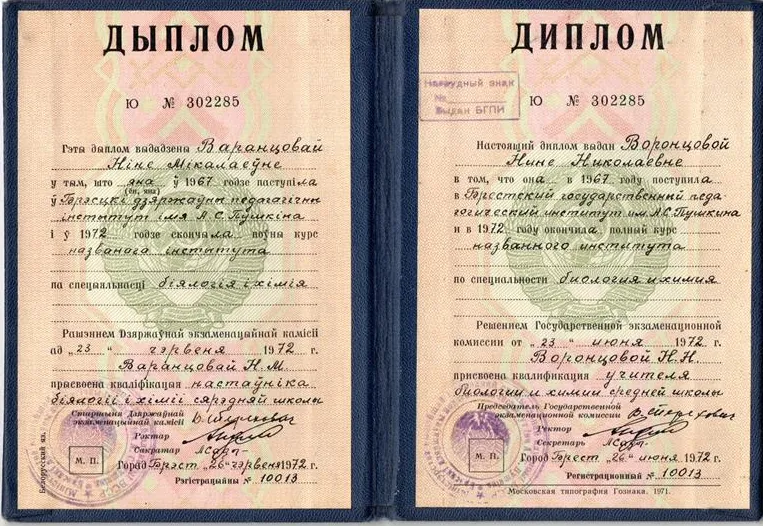 ДЫПЛОМ
Ю № 302285
Гэты дыплом выдадзены Варанцовай
Ніне Мікалаеўне
у тым, што яна ў 1967 годзе паступіла
(ён, яна)
ў Брэсцкі дзяржаўны педагагічны
інстытут імя А.С. Пушкіна
і ў 1972 годзе скончыла поўны курс
названага інстытута
па спецыяльнасці біялогія і хімія
Рашэннем Дзяржаўнай экзаменацыйнай камісіі
ад „23“ чэрвеня 1972 г.
Варанцовай Н.М.
прысвоена кваліфікацыя настаўніка
біялогіі і хіміі сярэдняй школы
Старшыня Дзяржаўнай
экзаменацыйнай камісіі
Рэктар
Сакратар
М. П.
Горад Брэст „26“ чэрвеня 1972 г.
Рэгістрацыйны № 10013
Белорусский яз.
ДИПЛОМ
Нагрудный знак
№
Выдан БГПИ
Ю № 302285
Настоящий диплом выдан Воронцовой
Нине Николаевне
в том, что она в 1967 году поступила
в Брестский государственный педа-
гогический институт им. А.С. Пушкина
и в 1972 году окончила полный курс
названного института
по специальности биология и химия
Решением Государственной экзаменационной
комиссии от „23“ июня 1972 г.
Воронцовой Н.Н.
присвоена квалификация учителя
биологии и химии средней школы
Председатель Государственной
экзаменационной комиссии
Ректор
Секретарь
М. П.
Город Брест „26“ июня 1972 г.
Регистрационный № 10013
Московская типография Гознака. 1971.